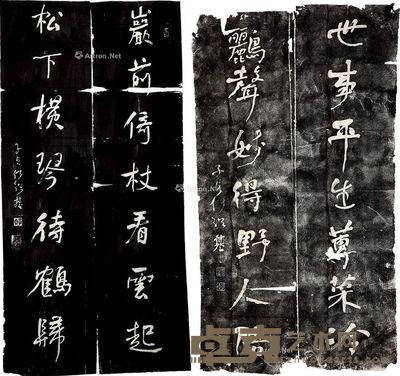 巖前倚杖看雲起
松下横琴待鶴歸
子貞何紹基
世事平生薄菜冷
鸝聲妙得野人同
子貞何紹基
Artron.Net
卓克艺术网